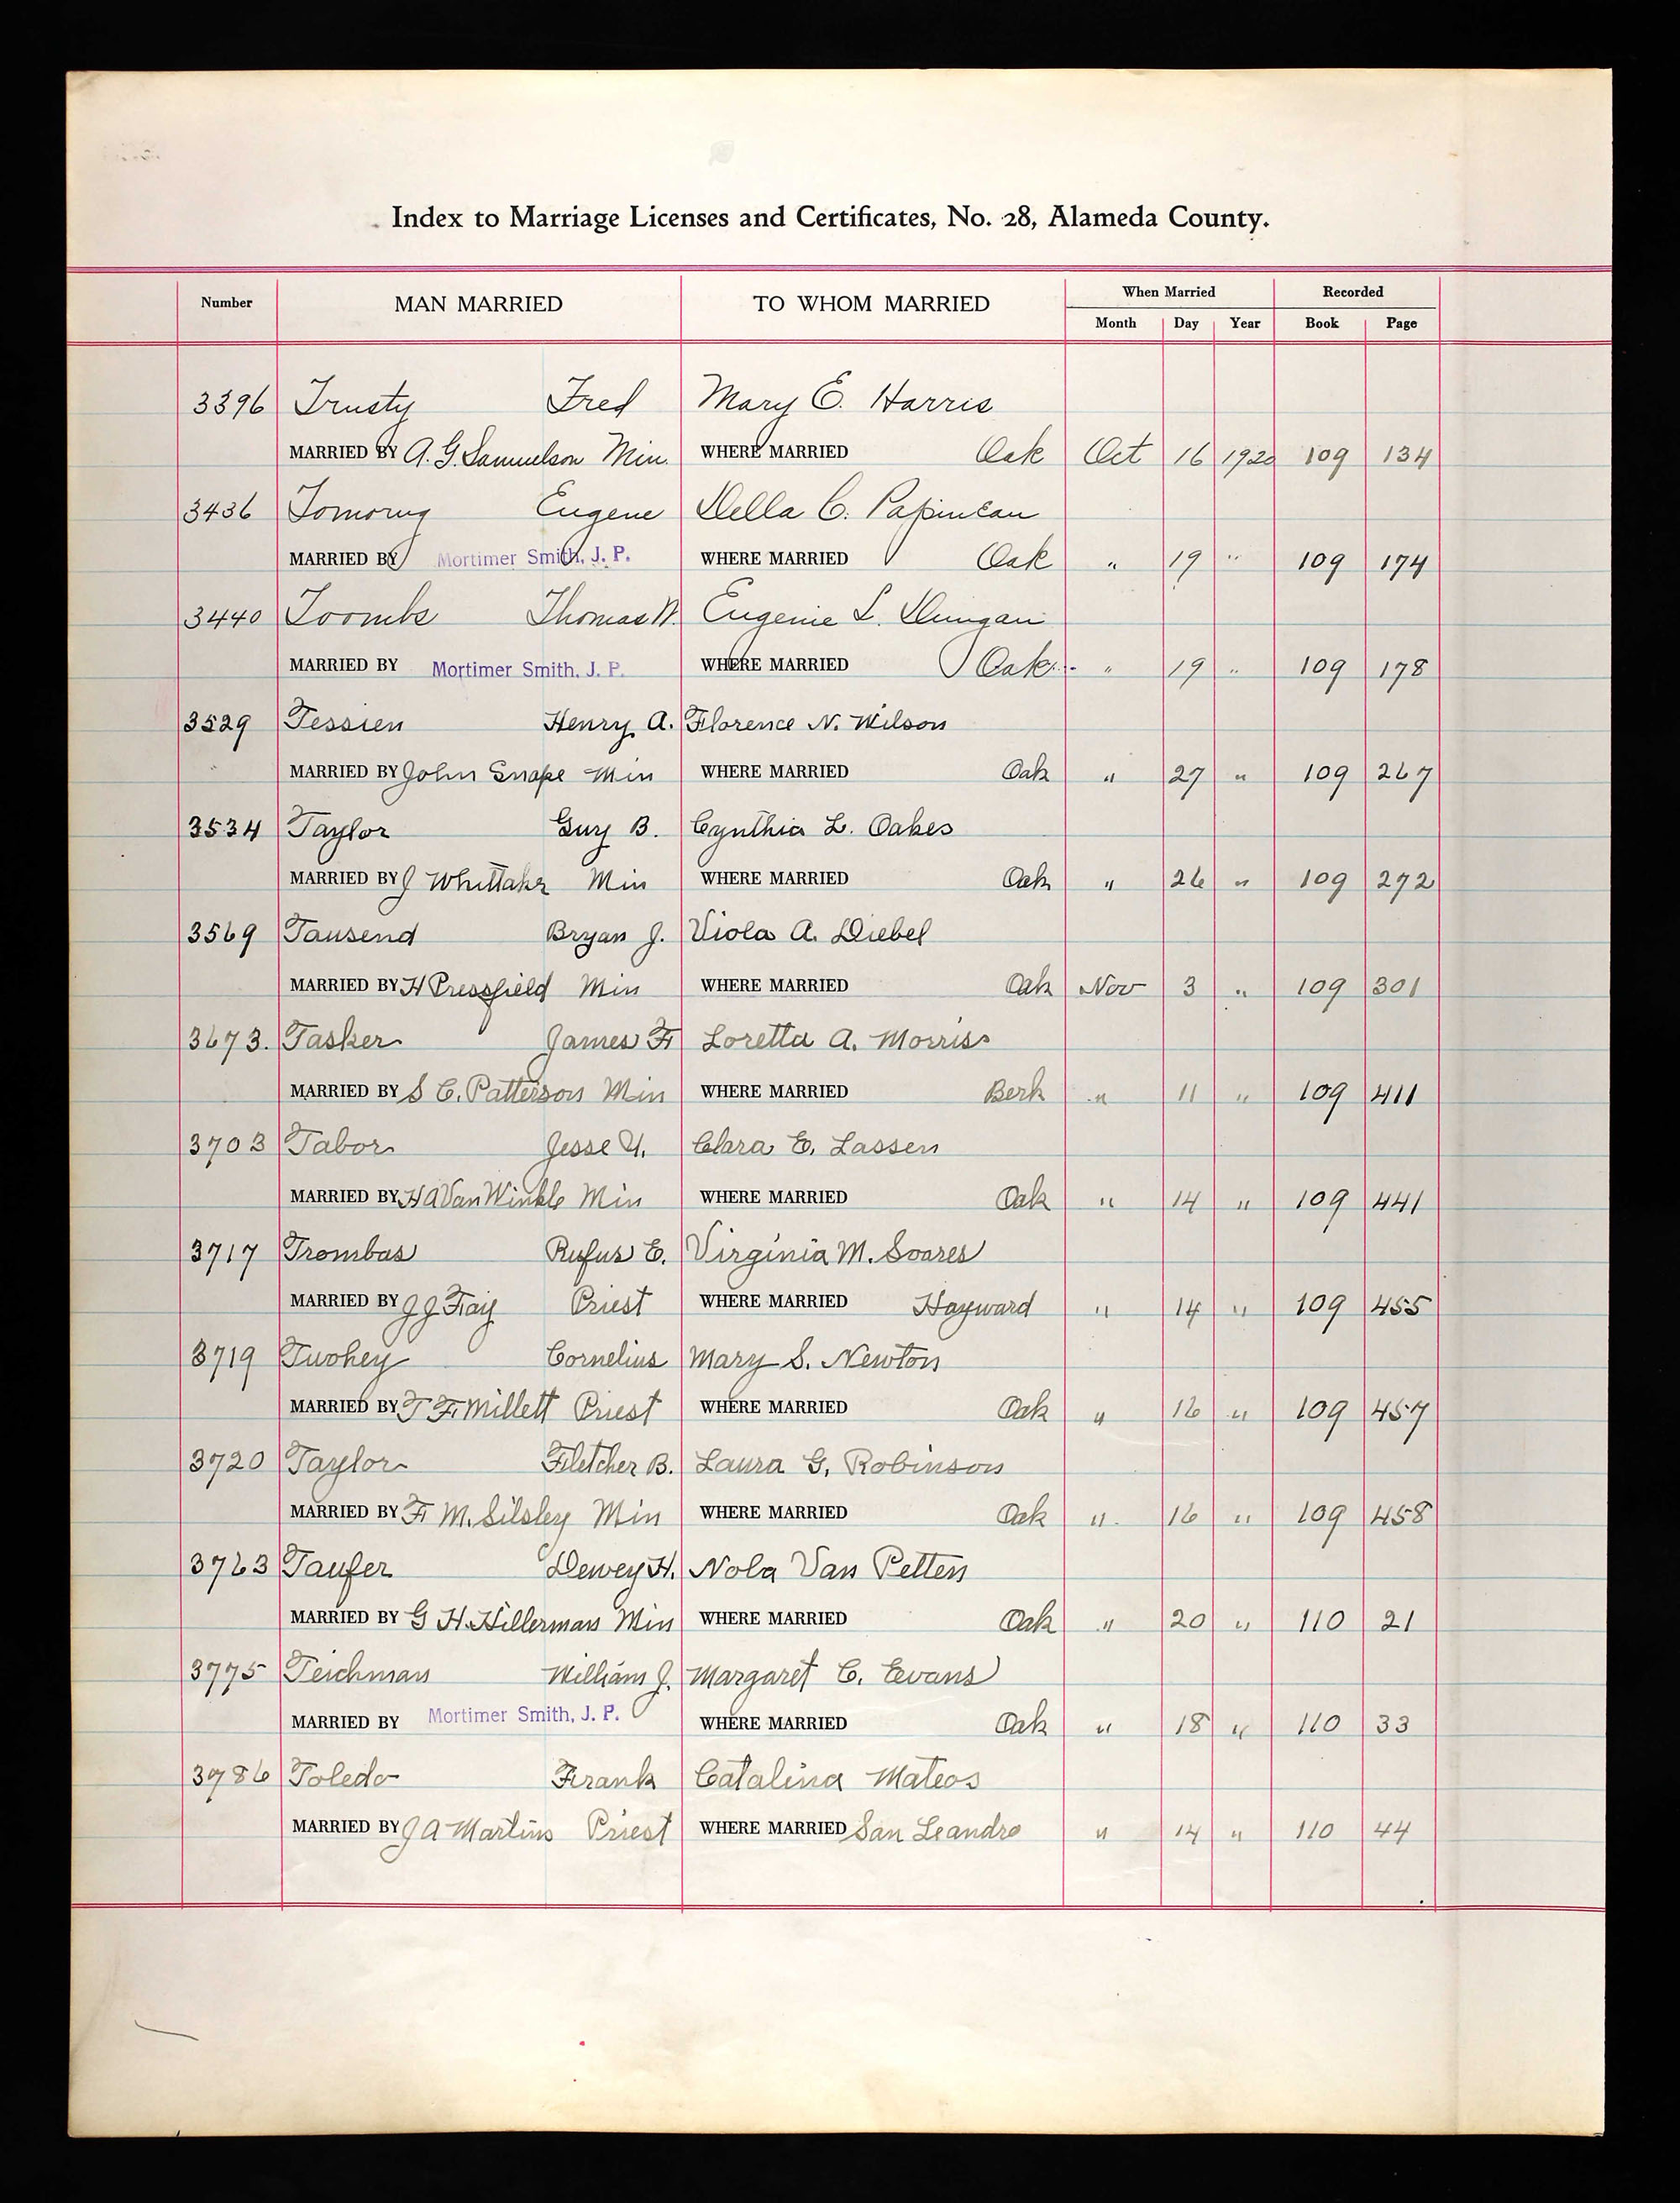 Index to Marriage Licenses and Certificates, No. 28, Alameda County.
Number MAN MARRIED TO WHOM MARRIED When Married Recorded
Month Day Year Book Page
3396 Trusty Fred Mary E. Harris
MARRIED BY A. G. Samuelson Min. WHERE MARRIED Oak Oct 16 1920 109 134
3436 Eugene Della C. Papineau
MARRIED BY Mortimer Smith, J. P. WHERE MARRIED Oak " 19 " 109 174
3440 Toombs Thomas W. Eugenie L. Dungan
MARRIED BY Mortimer Smith, J. P. WHERE MARRIED Oak " 19 " 109 178
3529 Tessien Henry A. Florence N. Wilson
MARRIED BY John Snape Min WHERE MARRIED Oak " 27 " 109 267
3534 Taylor Guy B. Cynthia L. Oakes
MARRIED BY J Whittaker Min WHERE MARRIED Oak " 26 " 109 272
3569 Tausend Bryan J. Viola A. Diebel
MARRIED BY H Pressfield Min WHERE MARRIED Oak Nov 3 " 109 301
3673. Tasker James F Loretta A. Morriss
MARRIED BY S C. Patterson Min WHERE MARRIED Berk " 11 " 109 411
3703 Tabor Jesse Y. Clara E. Lassen
MARRIED BY H A Van Winkle Min WHERE MARRIED Oak " 14 " 109 441
3717 Trombas Rufus E. Virginia M. Soares
MARRIED BY J J. Fay Priest WHERE MARRIED Hayward " 14 " 109 455
3719 Tuohey Cornelius Mary S. Newton
MARRIED BY T F. Millett Priest WHERE MARRIED Oak " 16 " 109 457
3720 Taylor Fletcher B. Laura G. Robinson
MARRIED BY F M. Silsley Min WHERE MARRIED Oak " 16 " 109 458
3763 Taufer Dewey H. Nola Van Petten
MARRIED BY G H. Hillerman Min WHERE MARRIED Oak " 20 " 110 21
3775 Teichman William J. Margaret C. Evans
MARRIED BY Mortimer Smith, J. P. WHERE MARRIED Oak " 18 " 110 33
3786 Toledo Frank Catalina Mateos
MARRIED BY J A Martins Priest WHERE MARRIED San Leandro " 14 " 110 44